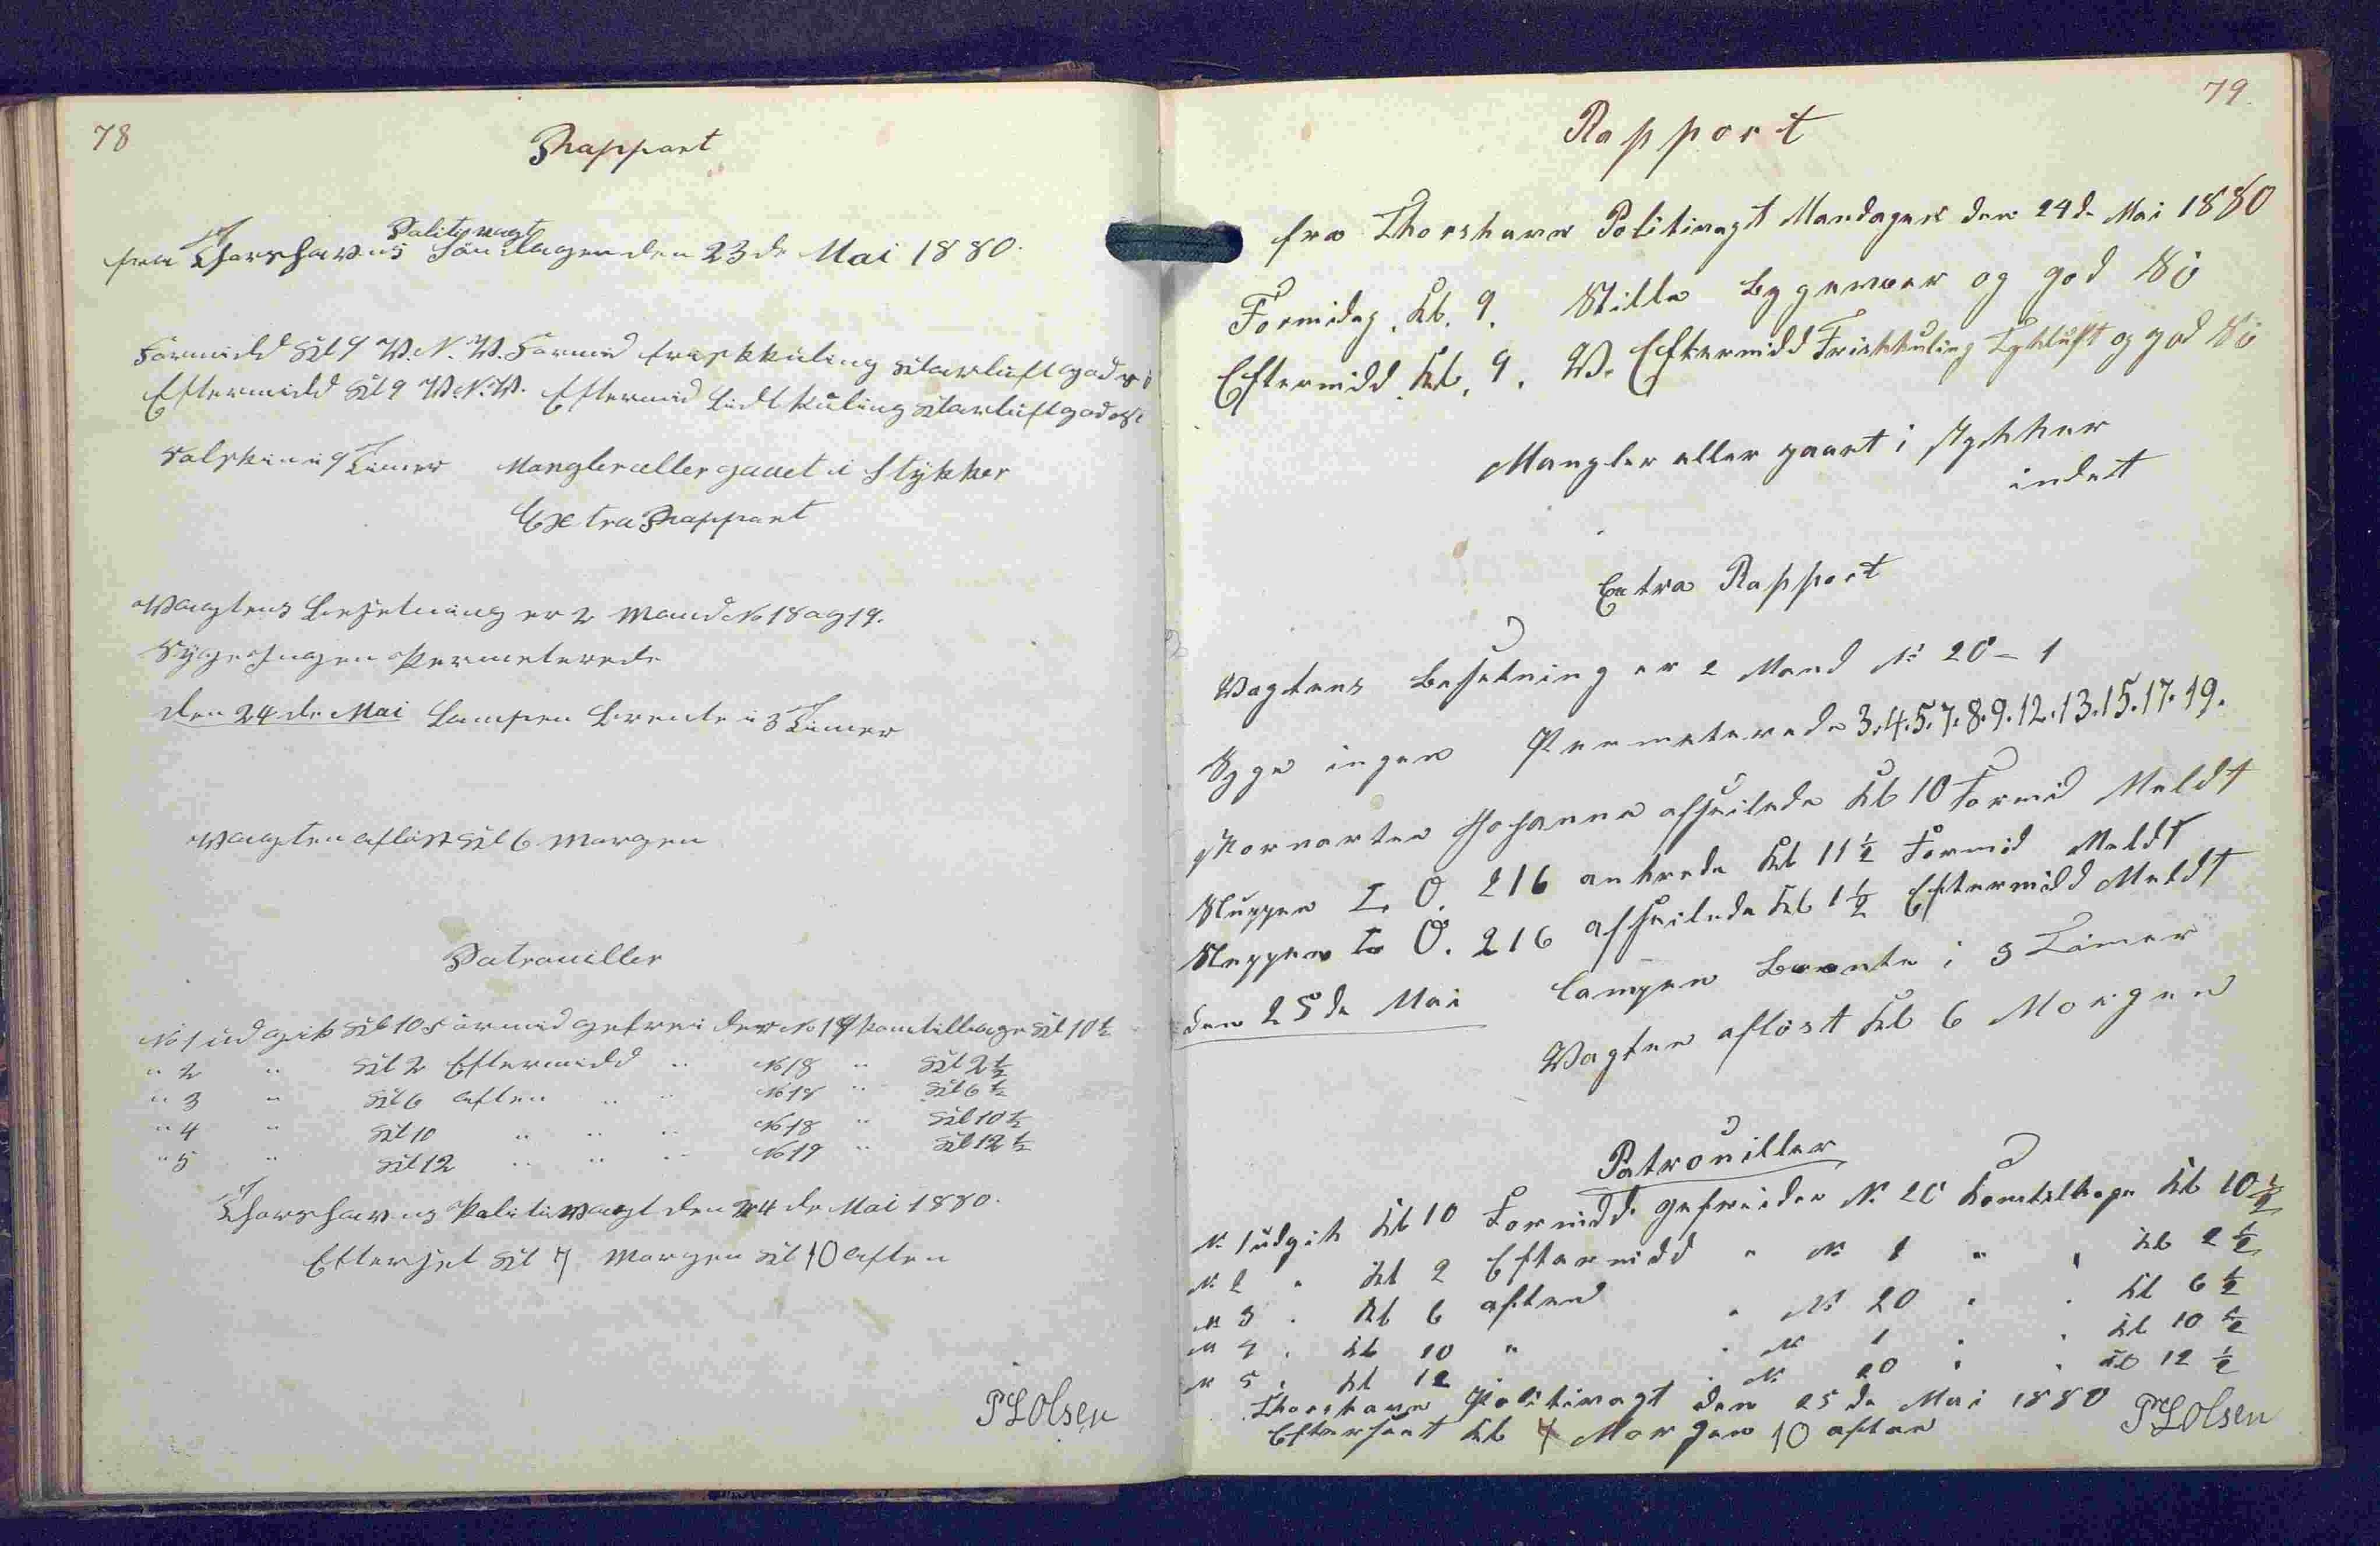 78
Rapport
Politivagt
fra Thorshavns Søndagen den 23de Mai 1880.
Formidd Kl 9 V.N.V. Formid friskkuling klarluft god Si
Eftermidd Kl 9 V.N.V. Eftermid lidt kuling klarluft god Si
Solskin i 9 Timer Mangler eller gaaet i Stykker
Extra Rapport
Vagtens Besetning er 2 Mand No 18 og 19.
Syge Ingen Permeterede
den 24de Mai Lampen Brente i 3 Timer
Vagten afløst Kl 6 Morgen
Patrouiller
No 1 udgik Kl 10 Formid gefreider No 19 kom tilbage Kl 10½
" 2 " Kl 2 Eftermidd " No 18 " Kl 2½
" 3 " Kl 6 Aften " " No 19 " Kl 6½
" 4 " Kl 10 " " " No 18 " Kl 10½
" 5 " Kl 12 " " " No 19 " Kl 12½
Thorshavns Politivagt den 24de Mai 1880.
Efterset Kl 7 Morgen Kl 10 Aften
P L Olsen
79.
Rapport
fra Thorshavn Politivagt Mandagen den 24de Mai 1880
Formidag. Kl. 9. Stille bygeveer og god Si
Eftermidd. Kl. 9. V. Eftermidd Friskkuling Tykluft og god Si
Mangler eller gaaet i stykker
indet
Extra Rapport
Vagtens Besetning er 2 Mand No 20 - 1
Syge ingen Permeterede 3.4.5.7.8.9.12.13.15.17.19.
Skonnerten Johanne afseilede Kl 10 Formid Meldt
Sluppen T. O. 216 ankrede Kl 11½ Formid Meldt
Sluppen T. O. 216 afseilede Kl 1½ Eftermidd Meldt
den 25de Mai Lampen Brente i 3 Timer
Vagten afløst Kl 6 Morgen
Patrouiller
N. 1 udgik Kl 10 Formidd. gefreider N. 20 komtilbage Kl 10½
N. 2 " Kl 2 Eftermidd " N. 1 " " Kl 2½
N 3 . Kl 6 Aften . N. 20 . . Kl 6½
N 4 . Kl 10 " . N. 1 . . Kl 10½
N 5 . Kl 12 . N. 20 . . Kl 12½
Thorshavn Politivagt den 25de Mai 1880
Efterseet Kl 7 Morgen 10 aften
P L Olsen